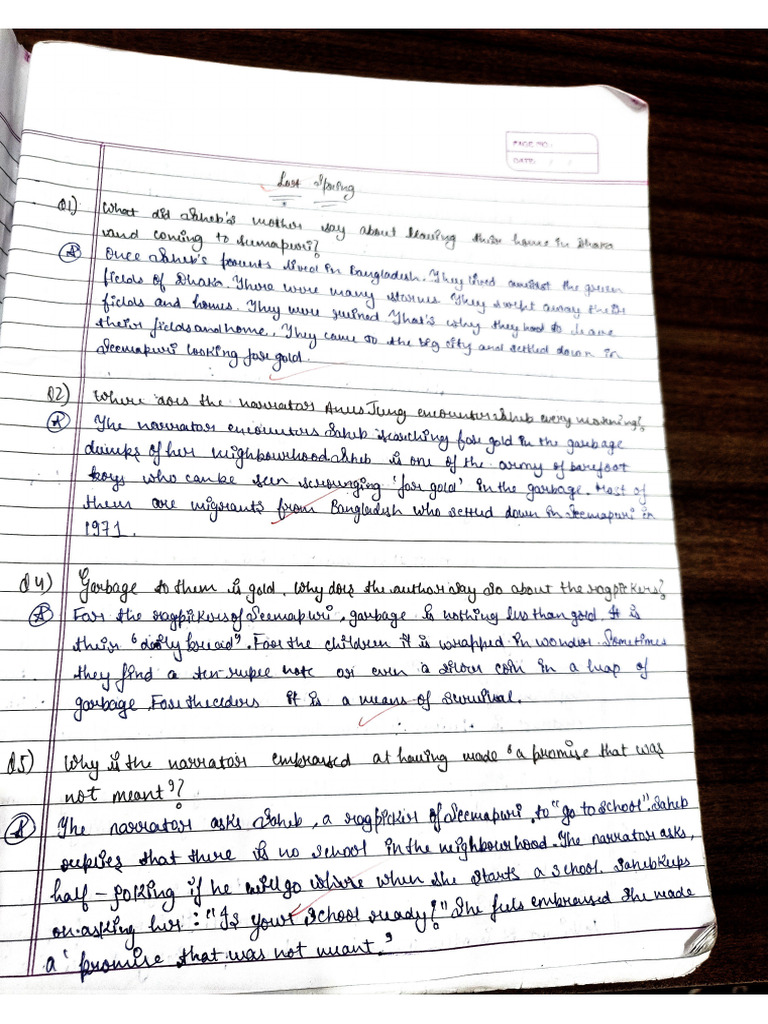 PAGE NO.:
DATE: / /
Lost Spring
Q1) What did Saheb's mother say about leaving their home in Dhaka
and coming to Seemapuri?
A Once Saheb's parents lived in Bangladesh. They lived amidst the green
fields of Dhaka. There were many storms. They swept away their
fields and homes. They were ruined. That's why they had to leave
their fields and home. They came to the big city and settled down in
Seemapuri looking for gold.
Q2) Where does the narrator Anees Jung encounter Saheb every morning?
A The narrator encounters Saheb searching for gold in the garbage
dumps of her neighbourhood. Saheb is one of the army of barefoot
boys who can be seen scrounging 'for gold' in the garbage. Most of
them are migrants from Bangladesh who settled down in Seemapuri in
1971.
Q4) Garbage to them is gold. Why does the author say so about the ragpickers?
A For the ragpickers of Seemapuri, garbage is nothing less than gold. It is
their "daily bread". For the children it is wrapped in wonder. Sometimes
they find a ten-rupee note or even a silver coin in a heap of
garbage. For the elders it is a means of survival.
Q5) Why is the narrator embrassed at having made 'a promise that was
not meant'?
A The narrator asks Saheb, a ragpicker of Seemapuri, to "go to school". Saheb
replies that there is no school in the neighbourhood. The narrator asks,
half-joking if he will go where when she starts a school. Saheb keeps
on asking her: "Is your school ready?" She feels embrassed she made
a 'promise that was not meant.'